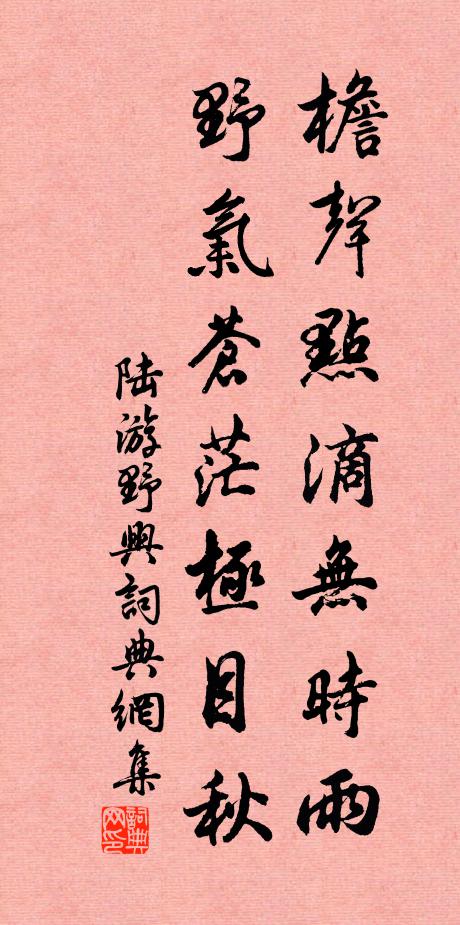 檐聲點滴無時雨
野氣蒼茫極目秋
陆游野興詞典網集
詞典网印